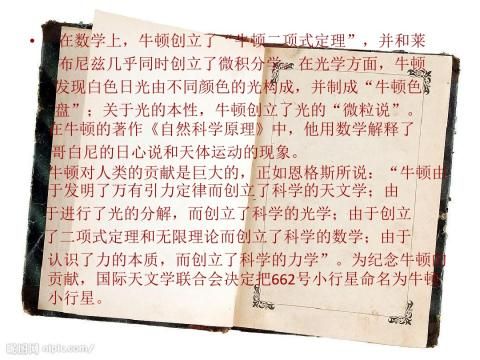 • 在数学上，牛顿创立了“牛顿二项式定理”，并和莱
布尼兹几乎同时创立了微积分学。在光学方面，牛顿
发现白色日光由不同颜色的光构成，并制成“牛顿色
盘”；关于光的本性，牛顿创立了光的“微粒说”。
在牛顿的著作《自然科学原理》中，他用数学解释了
哥白尼的日心说和天体运动的现象。
牛顿对人类的贡献是巨大的，正如恩格斯所说：“牛顿由
于发明了万有引力定律而创立了科学的天文学；由
于进行了光的分解，而创立了科学的光学；由于创立
了二项式定理和无限理论而创立了科学的数学；由于
认识了力的本质，而创立了科学的力学”。为纪念牛顿的
贡献，国际天文学联合会决定把662号小行星命名为牛顿
小行星。
昵图网 nipic.com/